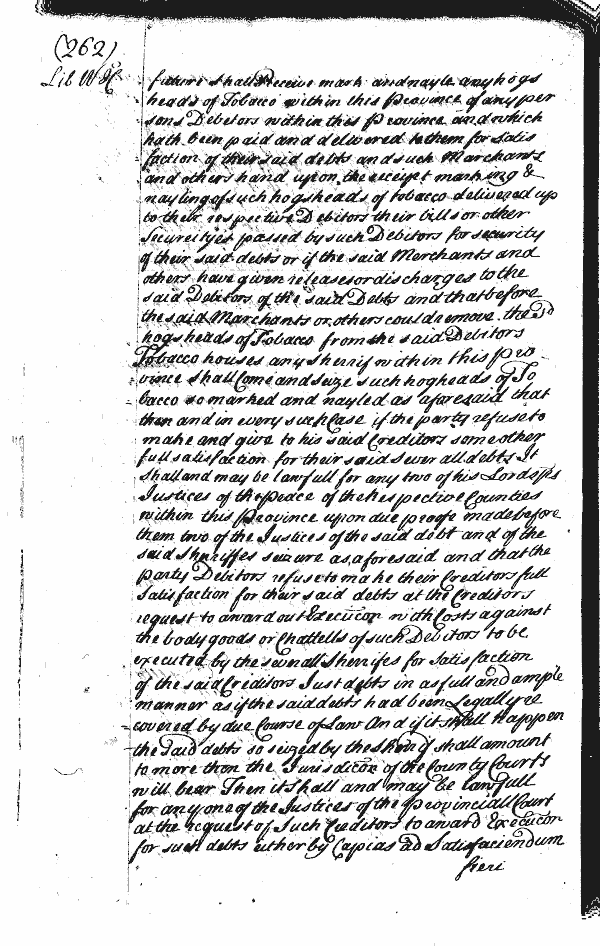 (262)
Lib W H
future shall Receive mark and nayle any hogs
heads of Tobacco within this Province of any per
sons Debitors within this Province and which
hath been paid and delivered to them for Satis
faction of their said debts and such Marchants
and others hand upon the receipt marking &
nayling of such hogsheads of tobacco delivered up
to their respective Debitors their bills or other
Secureityes passed by such Debitors for security
of their said debts or if the said Merchants and
others have given releases or discharges to the
said Debitors of the said Debts and that before
the said Marchants or others could remove the sd
hogsheads of Tobacco from the said Debitors
Tobacco houses any Sherrif within this Pro
vince shall Come and seize such hogheads of To
bacco so marked and nayled as aforesaid that
then and in every such Case if the party refuse to
make and give to his said Creditors some other
full satisfaction for their said Severall debts It
shall and may be lawfull for any two of his Lordsps
Justices of the peace of the respective Counties
within this Province upon due proofe made before
them two of the Justices of the said debt and of the
said Sherriffes seizure as aforesaid and that the
party Debitors refuse to make their Creditors full
Satisfaction for their said debts at the Creditors
request to award out Execucon with Costs against
the body goods or Chattells of such Debitors to be
executed by the severall Sherrifes for Satisfaction
of the said Creditors Just debts in as full and ample
manner as if the said debts had been Legally re
covered by due Course of Law And if it shall Happen
the said debts so seized by the Sherif shall amount
to more then the Jurisdicon of the County Courts
will bear Then it shall and may be lawfull
for any one of the Justices of the Provinciall Court
at the request of Such Creditors to award Execucon
for such debts either by Capias ad Satisfaciendum
fieri